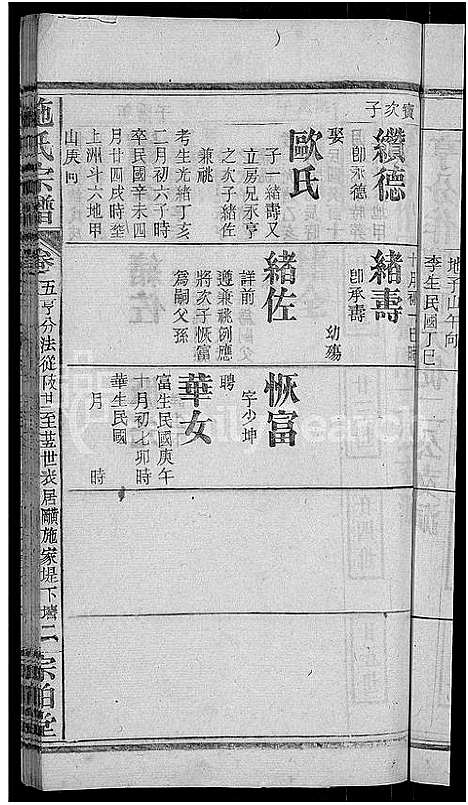 地子山午向
李生民國丁巳
賓次子
纘德
即承德
娶
歐氏
子一緒壽又
立房兄承亨
之次子緒佐
兼祧
考生光緒丁亥
二月初六子時
卒民國辛未四
月廿四戌時塟
上洲斗六地甲
山庚向
緒壽
即承壽
幼殤
緒佐
詳前
遵兼祧例應
將次子恢富
為嗣父孫
恢富
字少坤
聘
華女
富生民國庚午
十月初七卯時
華生民國
月 時
施氏宗譜
卷五亨分法從
至
世表居
施家堤下
二
宗伯堂